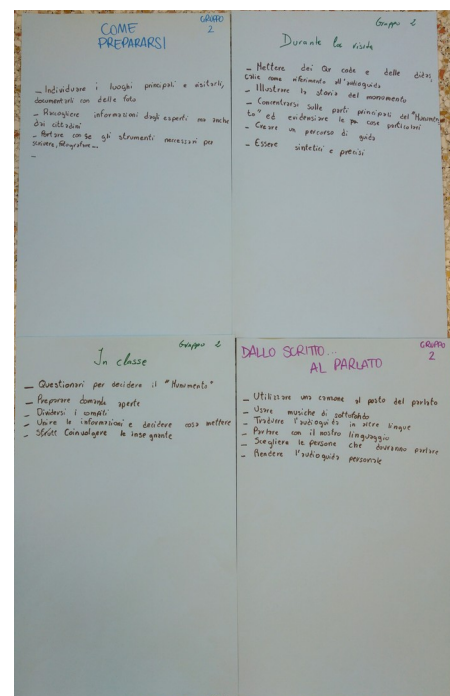 COME
PREPARARSI
GRUPPO
2
– Individuare i luoghi principali e visitarli,
documentarli con delle foto
– Raccogliere informazioni dagli esperti ma anche
dai cittadini
– Portare con se gli strumenti necessari per
scrivere, fotografare...
–
Gruppo 2
Durante la visita
– Mettere dei Qr code e delle didas
calie come riferimento all'audioguida
– Illustrare la storia del monumento
– Concentrarsi sulle parti principali del "Monumen
to" ed evidenziare le cose particolari
– Creare un percorso di guida
– Essere sintetici e precisi
Gruppo 2
In classe
– Questionari per decidere il "Monumento"
– Preparare domande aperte
– Dividersi i compiti
– Unire le informazioni e decidere cosa mettere
– Coinvolgere le insegnante
DALLO SCRITTO...
AL PARLATO
GRUPPO
2
– Utilizzare una canzone al posto del parlato
– Usare musiche di sottofondo
– Tradurre l'audioguida in altre lingue
– Parlare con il nostro linguaggio
– Scegliere le persone che dovranno parlare
– Rendere l'audioguida personale